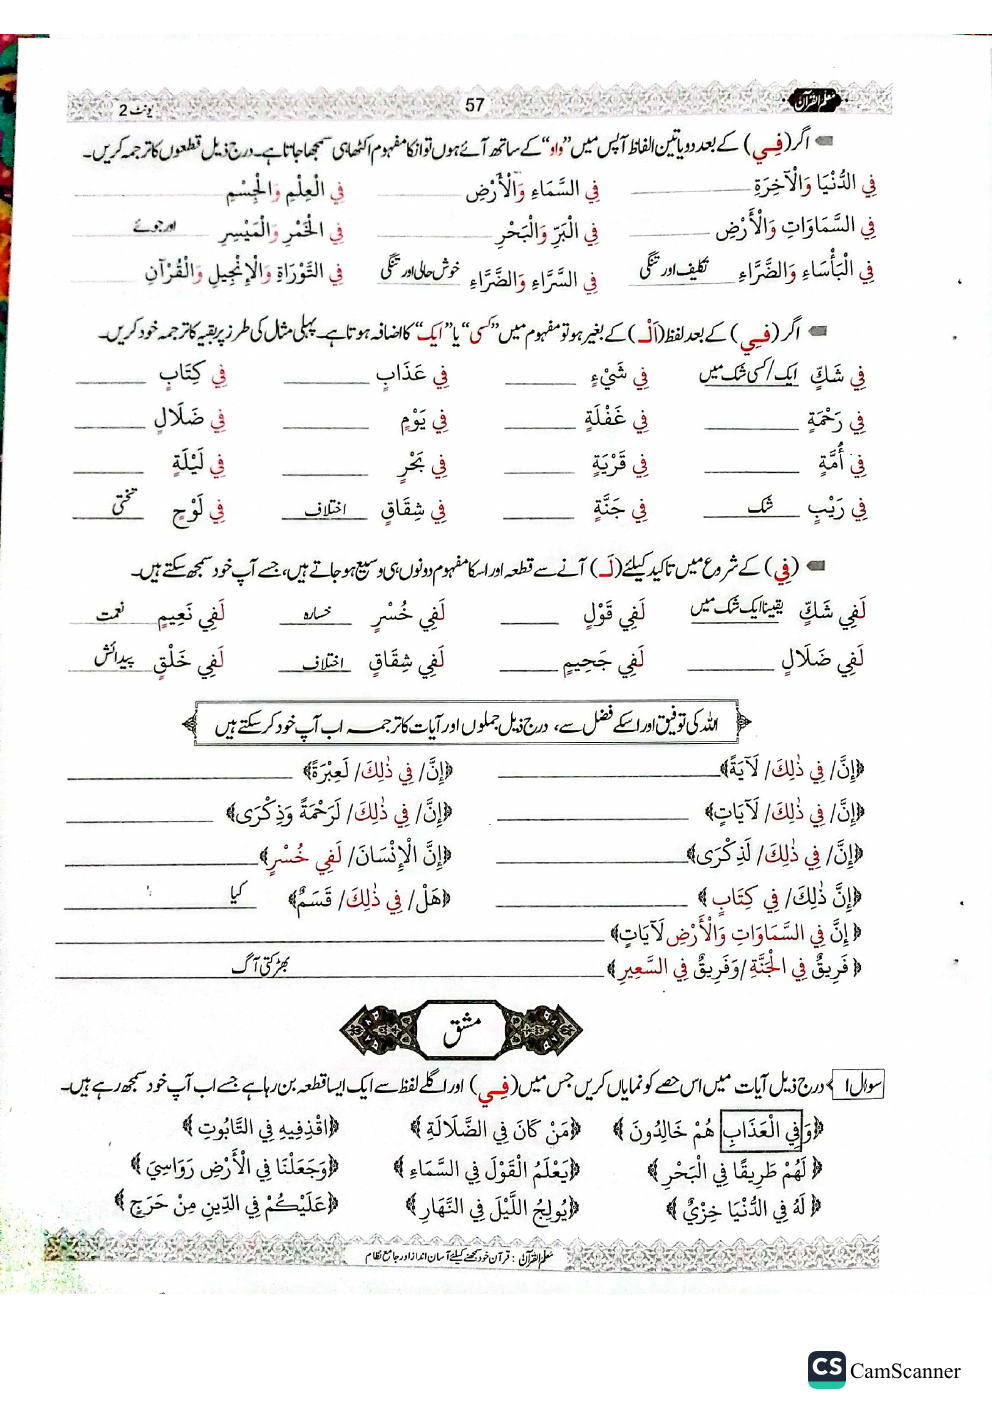 معلم القرآن 57 یونٹ 2
اگر (فِي) کے بعد دو یا تین الفاظ آپس میں ”واؤ“ کے ساتھ آئے ہوں تو انکا مفہوم اکٹھا ہی سمجھا جاتا ہے۔ درج ذیل قطعوں کا ترجمہ کریں۔
فِي الدُّنْيَا وَالْآخِرَةِ ________ فِي السَّمَاءِ وَالْأَرْضِ ________ فِي الْعِلْمِ وَالْجِسْمِ ________
فِي السَّمَاوَاتِ وَالْأَرْضِ ________ فِي الْبَرِّ وَالْبَحْرِ ________ فِي الْخَمْرِ وَالْمَيْسِرِ اور جوئے
فِي الْبَأْسَاءِ وَالضَّرَّاءِ تکلیف اور تنگی فِي السَّرَّاءِ وَالضَّرَّاءِ خوش حالی اور تنگی فِي التَّوْرَاةِ وَالْإِنْجِيلِ وَالْقُرْآنِ ________
اگر (فِي) کے بعد لفظ (اَلْ) کے بغیر ہو تو مفہوم میں ”کسی“ یا ”ایک“ کا اضافہ ہوتا ہے۔ پہلی مثال کی طرز پر بقیہ کا ترجمہ خود کریں۔
فِي شَكٍّ ایک/کسی شک میں فِي شَيْءٍ ________ فِي عَذَابٍ ________ فِي كِتَابٍ ________
فِي رَحْمَةٍ ________ فِي غَفْلَةٍ ________ فِي يَوْمٍ ________ فِي ضَلَالٍ ________
فِي أُمَّةٍ ________ فِي قَرْيَةٍ ________ فِي بَحْرٍ ________ فِي لَيْلَةٍ ________
فِي رَيْبٍ شک فِي جَنَّةٍ ________ فِي شِقَاقٍ اختلاف فِي لَوْحٍ تختی
(فِي) کے شروع میں تاکید کیلئے (لَـ) آنے سے قطعہ اور اسکا مفہوم دونوں ہی وسیع ہو جاتے ہیں، جسے آپ خود سمجھ سکتے ہیں۔
لَفِي شَكٍّ یقینا ایک شک میں لَفِي قَوْلٍ ________ لَفِي خُسْرٍ خسارہ لَفِي نَعِيمٍ نعمت
لَفِي ضَلَالٍ ________ لَفِي جَحِيمٍ ________ لَفِي شِقَاقٍ اختلاف لَفِي خَلْقٍ پیدائش
اللہ کی توفیق اور اسکے فضل سے، درج ذیل جملوں اور آیات کا ترجمہ اب آپ خود کر سکتے ہیں
﴿إِنَّ/ فِي ذٰلِكَ/ لَآيَةً﴾ ________ ﴿إِنَّ/ فِي ذٰلِكَ/ لَعِبْرَةً﴾ ________
﴿إِنَّ/ فِي ذٰلِكَ/ لَآيَاتٍ﴾ ________ ﴿إِنَّ/ فِي ذٰلِكَ/ لَرَحْمَةً وَذِكْرَى﴾ ________
﴿إِنَّ/ فِي ذٰلِكَ/ لَذِكْرَى﴾ ________ ﴿إِنَّ الْإِنْسَانَ/ لَفِي خُسْرٍ﴾ ________
﴿إِنَّ ذٰلِكَ/ فِي كِتَابٍ﴾ ________ ﴿هَلْ/ فِي ذٰلِكَ/ قَسَمٌ﴾ کیا
﴿إِنَّ فِي السَّمَاوَاتِ وَالْأَرْضِ لَآيَاتٍ﴾ ________
﴿فَرِيقٌ فِي الْجَنَّةِ/ وَفَرِيقٌ فِي السَّعِيرِ﴾ بھڑکتی آگ
مشق
سوال ا درج ذیل آیات میں اس حصے کو نمایاں کریں جس میں (فِي) اور اگلے لفظ سے ایک ایسا قطعہ بن رہا ہے جسے اب آپ خود سمجھ رہے ہیں۔
﴿وَفِي الْعَذَابِ هُمْ خَالِدُونَ﴾ ﴿مَنْ كَانَ فِي الضَّلَالَةِ﴾ ﴿اقْذِفِيهِ فِي التَّابُوتِ﴾
﴿لَهُمْ طَرِيقًا فِي الْبَحْرِ﴾ ﴿يَعْلَمُ الْقَوْلَ فِي السَّمَاءِ﴾ ﴿وَجَعَلْنَا فِي الْأَرْضِ رَوَاسِيَ﴾
﴿لَهُ فِي الدُّنْيَا خِزْيٌ﴾ ﴿يُولِجُ اللَّيْلَ فِي النَّهَارِ﴾ ﴿عَلَيْكُمْ فِي الدِّينِ مِنْ حَرَجٍ﴾
معلم القرآن : قرآن خود سمجھنے کیلئے آسان انداز اور جامع نظام
CS CamScanner